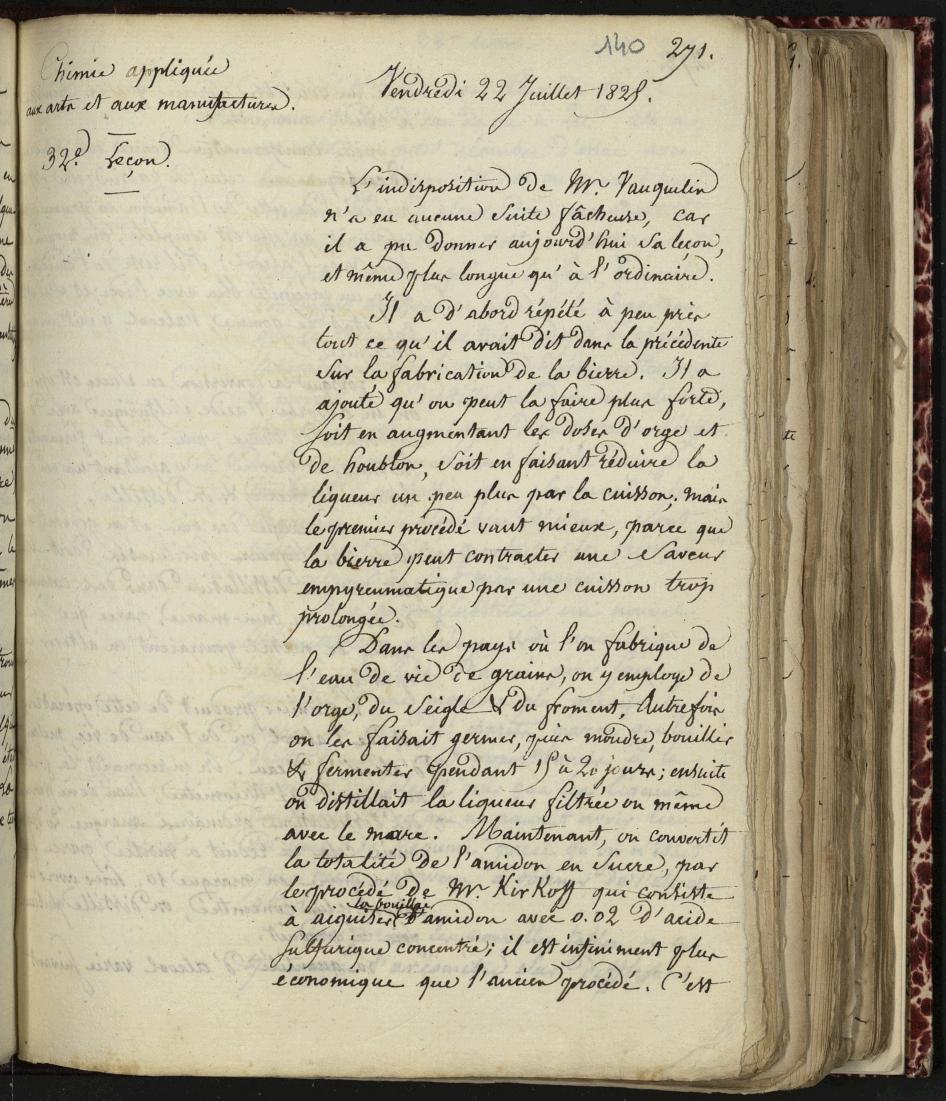 140 271.
Chimie appliquée
aux arts et aux manufactures.
Vendredi 22 Juillet 1825.
32e. Leçon.
L'indisposition de Mr. Vauquelin
n'a eu aucune suite fâcheuse, car
il a pu donner aujourd'hui sa leçon,
et même plus longue qu'à l'ordinaire.
Il a d'abord répété à peu près
tout ce qu'il avait dit dans la précédente
sur la fabrication de la bierre. Il a
ajouté qu'on peut la faire plus forte,
soit en augmentant les doses d'orge et
de houblon, soit en faisant réduire la
liqueur un peu plus par la cuisson; mais
le premier procédé vaut mieux, parce que
la bierre peut contracter une saveur
empyreumatique par une cuisson trop
prolongée.
Dans les pays où l'on fabrique de
l'eau de vie de grains, on y employe de
l'orge, du seigle & du froment. Autrefois
on les faisait germer, puis moudre, bouillir
& fermenter pendant 15 à 20 jours; ensuite
on distillait la liqueur filtrée ou même
avec le marc. Maintenant, on convertit
la totalité de l'amidon en sucre, par
le procédé de Mr. KirKoff qui consiste
la bouillie
à aiguiser d'amidon avec 0.02 d'acide
sulfurique concentré; il est infiniment plus
économique que l'ancien procédé. C'est